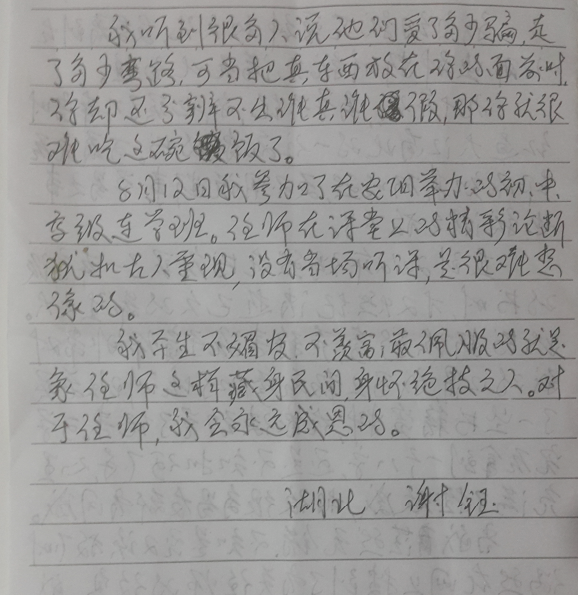 我听到很多人说他们受了多少骗，走
了多少弯路，可当把真东西放在你的面前时，
你却还了辨不出谁真谁假，那你就很
难吃这碗饭了。
8月12日我参加了在安阳举办的初、中、
高级连学班。任师在课堂上的精彩论断
犹和古人重现，没有当场听课，是很难想
像的。
我平生不媚权，不羡富，最佩服的就是
象任师这样藏身民间，身怀绝技之人。对
于任师，我会永远感恩的。
湖北 谢钰